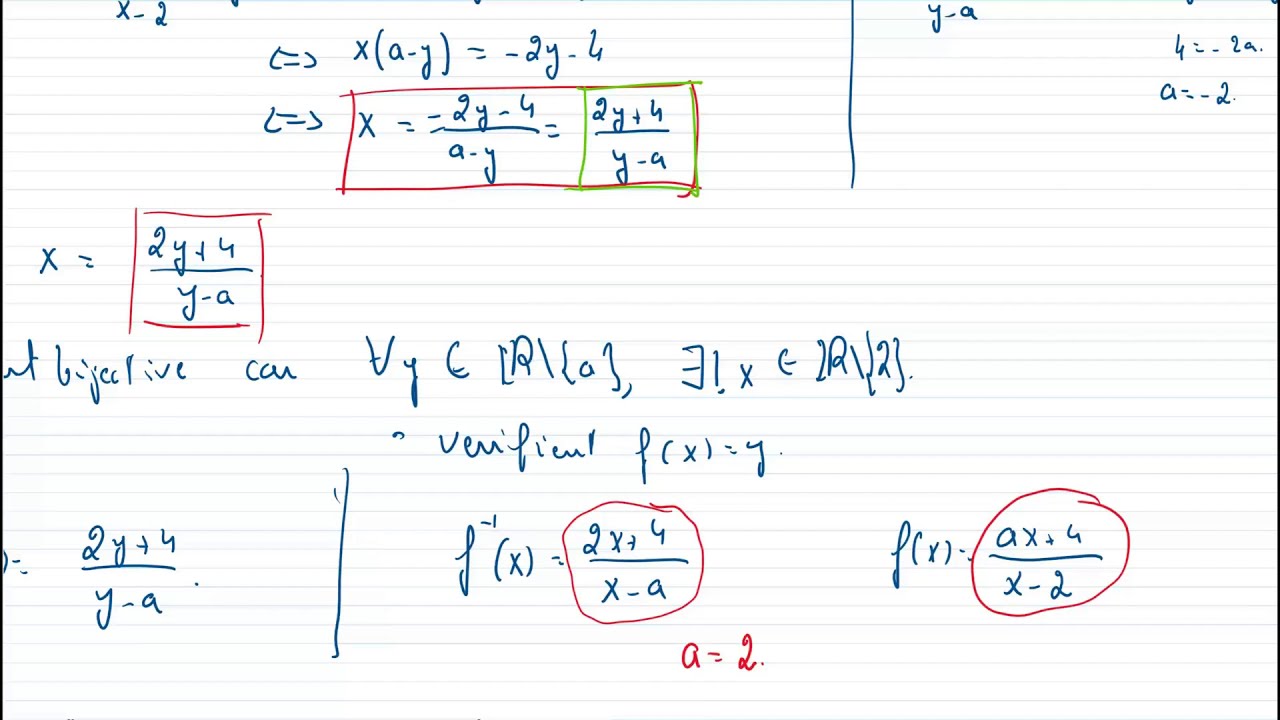 x-2
⟺ x(a-y) = -2y-4
⟺ x = \frac{-2y-4}{a-y} = \frac{2y+4}{y-a}
y-a
4=-2a.
a=-2.
x = \frac{2y+4}{y-a}
bijective car ∀y ∈ ℝ\{a}, ∃! x ∈ ℝ\{2}.
verifient f(x)=y.
)= \frac{2y+4}{y-a}.
f^{-1}(x) = \frac{2x+4}{x-a}
f(x)= \frac{ax+4}{x-2}
a=2.